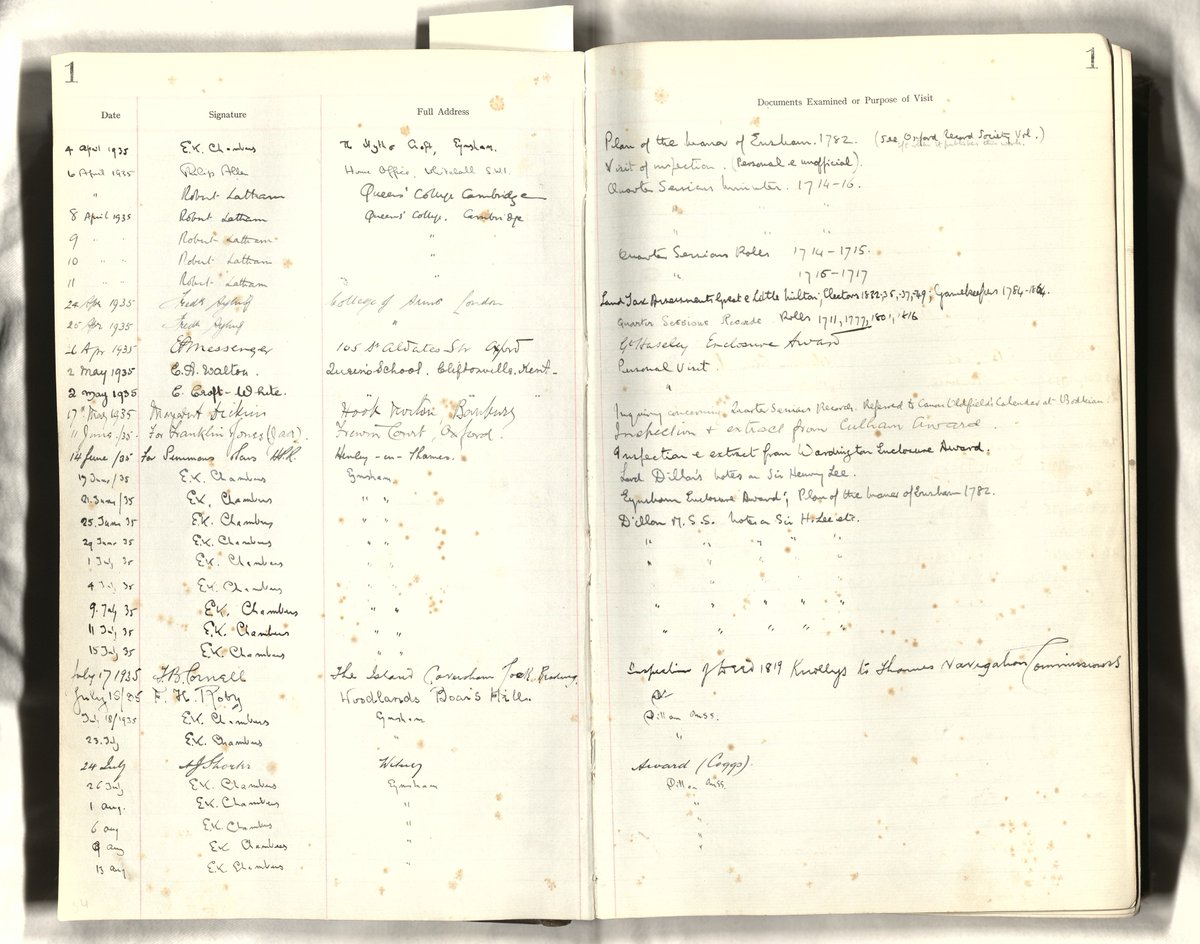 1
1
Date Signature Full Address Documents Examined or Purpose of Visit
4 April 1935 E.K. Chambers Eynsham. Plan of the Manor of Ensham. 1782. (See Oxford Record Society Vol.)
6 April 1935 Philip Allen Home Office, Whitehall S.W.1. Visit of inspection. (Personal & unofficial).
" Robert Latham Queens' College Cambridge Quarter Sessions minutes. 1714-16.
8 April 1935 Robert Latham Queens' College. Cambridge " " "
9 " " Robert Latham "
10 " " Robert Latham " Quarter Sessions Rolls 1714-1715.
11 " " Robert Latham " " 1716-1717
24 Apr 1935 College of Arms London Land Tax Assessments Great & Little Milton, Electors 1832, 35, -37, -49; Gamekeepers 1784-
25 Apr 1935 " Quarter Sessions Records. Rolls 1711, 1777, 1801, 1816
26 Apr 1935 Messenger 105 St Aldates Str Oxford Gt Haseley Enclosure Award
2 May 1935 C.A. Walton. Queen's School. Cliftonville. Kent- Personal Visit
2 May 1935 C. Croft-White. " " "
17th May 1935 Margaret Dickins Hook Norton Banbury Inquiry concerning Quarter Sessions Records. Referred to Canon Oldfield's Calendar at Bodleian.
11 June/35. For Franklin & Jones Frewin Court, Oxford. Inspection & extract from Culham Award.
14 June/35 For Simmons & Sons Henley-in-Thames. Inspection & extract from Wardington Enclosure Award.
19 June/35 E.K. Chambers Eynsham Lord Dillon's notes on Sir Henry Lee.
21. June/35 E.K. Chambers " " Eynsham Enclosure Award; Plan of the Manor of Ensham 1782.
25. June 35 E.K. Chambers " " Dillon M.S.S. notes on Sir H. Lee etc.
29 June 35 E.K. Chambers " " " " " " "
1 July 35 E.K. Chambers " " " " " " "
4 July 35 E.K. Chambers " "
9. July 35 E.K. Chambers " " " " " " "
11 July 35 E.K. Chambers " " " " " " "
15 July 35 E.K. Chambers " "
July 17 1935 F.B. Cornell The Island Caversham Lock Reading Inspection of Deed 1819 Knollys to Thames Navigation Commissioners
July 18/35 F. H. Roby Woodlands Boar's Hill
July 18/1935 E.K. Chambers Eynsham Dillon mss.
23. July E.K. Chambers " "
24 July AJ Shorter Witney Award (Coggs).
26 July E.K. Chambers Eynsham Dillon mss.
1 Aug. E.K. Chambers " "
6 Aug E.K. Chambers " "
9 Aug E.K. Chambers " "
13 Aug E.K. Chambers "